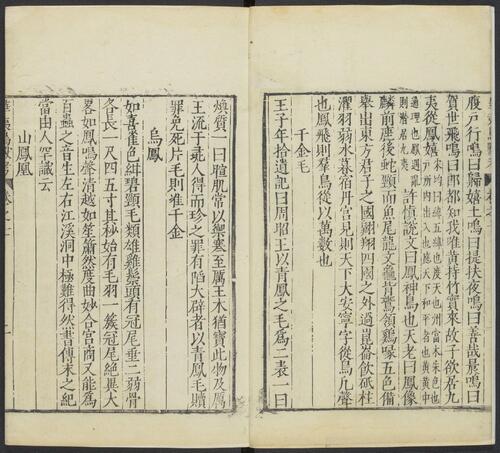 腹戸行鳴曰歸嬉止鳴曰提扶夜鳴曰善哉晨鳴曰
賀世飛鳴曰郎都知我唯黄持竹實來故子欲居九
夷從鳳嬉
許慎說文曰鳳神鳥也天老曰鳳像
麟前鹿後蛇頸而魚尾龍文龜背鷰頷鷄喙五色備
舉出東方君子之國翺翔四國之外過崑崙飲砥柱
濯羽弱水暮宿丹宮見則天下大安寧字從鳥凡聲
也鳳飛則羣鳥從以萬數也
千金毛
王子年拾遺記曰周昭王以青鳳之毛為二裘一曰
燠質一曰暄肌常以禦寒至厲王末猶寶此物及厲
王流于彘人得而珍之罪有陷大辟者以青鳳毛贖
罪免死片毛則准千金
烏鳳
如喜雀色紺碧頸毛類雄雞鬃頭有冠尾垂二弱骨
各長一尺四五寸其杪始有毛羽一簇冠尾絶異大
畧如鳳鳴聲清越如笙簫然度曲妙合宮商又能為
百蟲之音生左右江溪洞中極難得然書傳未之紀
當由人罕識云
山鳳凰